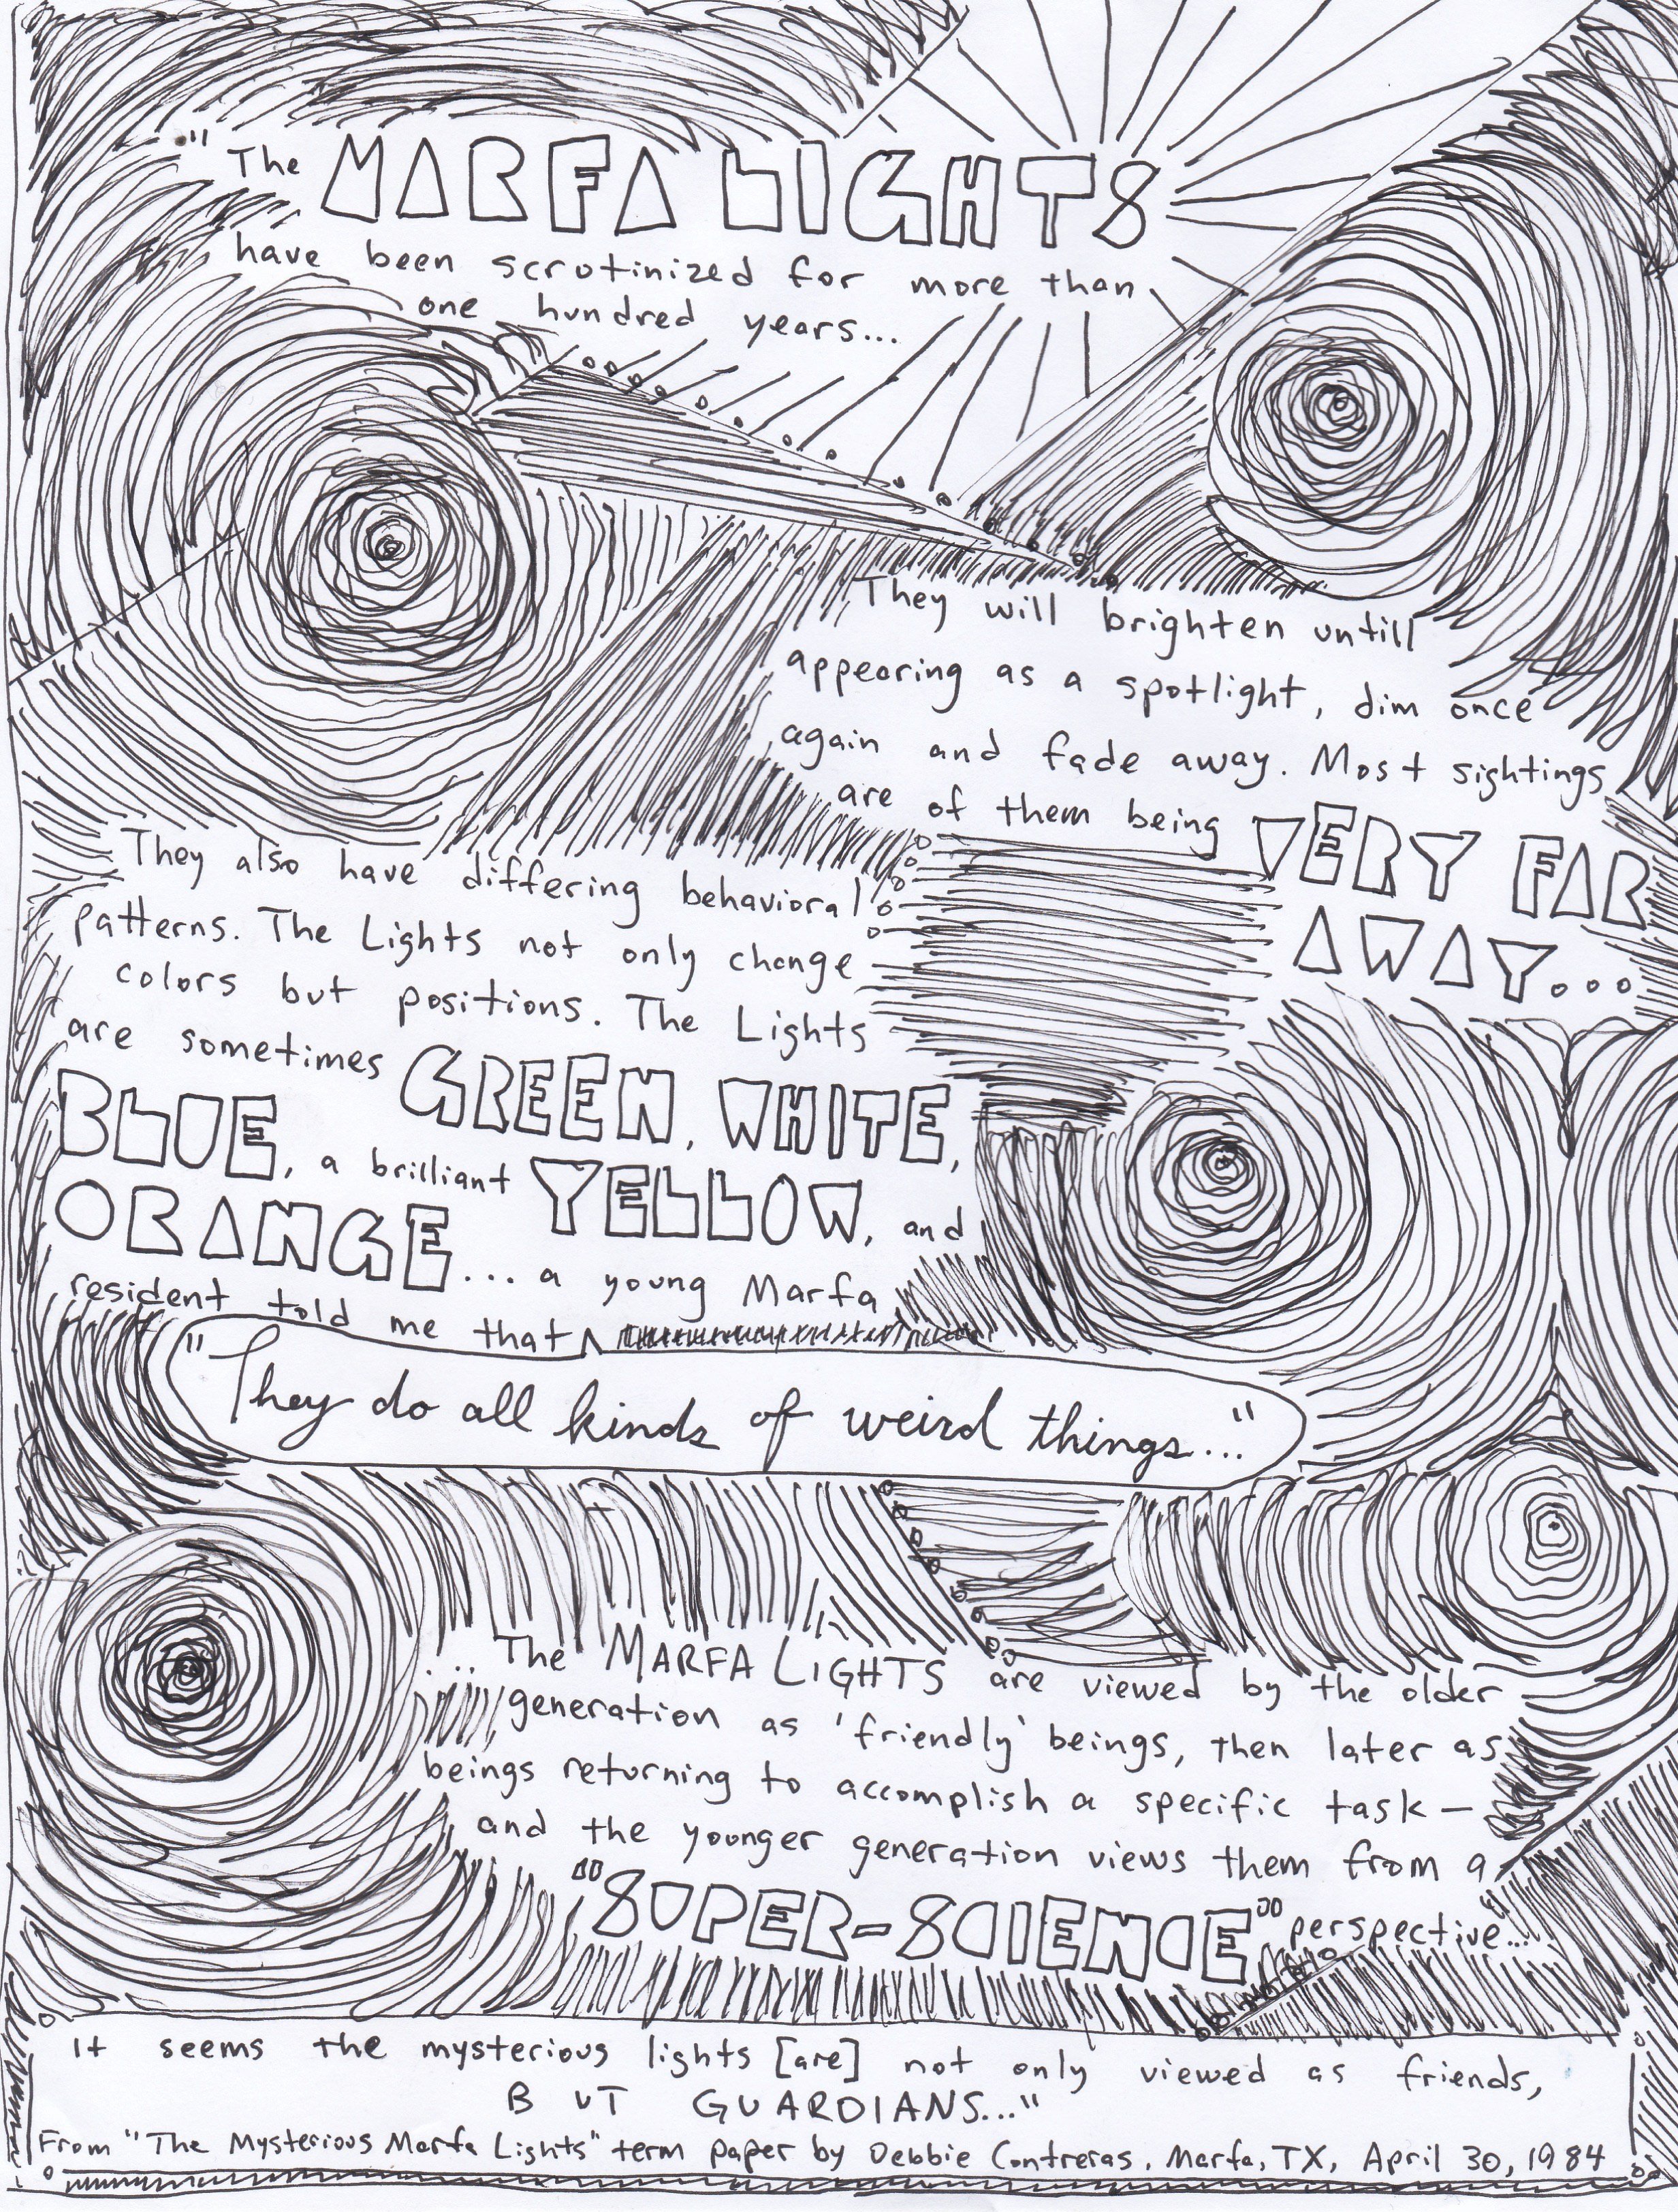 "The MARFA LIGHTS
have been scrutinized for more than
one hundred years...
They will brighten untill
appearing as a spotlight, dim once
again and fade away. Most sightings
are of them being VERY FAR
AWAY...
They also have differing behavioral
patterns. The Lights not only change
colors but positions. The Lights
are sometimes GREEN, WHITE,
BLUE, a brilliant YELLOW, and
ORANGE... a young Marfa
resident told me that
"They do all kinds of weird things..."
... The MARFA LIGHTS are viewed by the older
generation as 'friendly' beings, then later as
beings returning to accomplish a specific task—
and the younger generation views them from a
"SUPER-SCIENCE" perspective...
It seems the mysterious lights [are] not only viewed as friends,
BUT GUARDIANS..."
From "The Mysterious Marfa Lights" term paper by Debbie Contreras, Marfa, TX, April 30, 1984